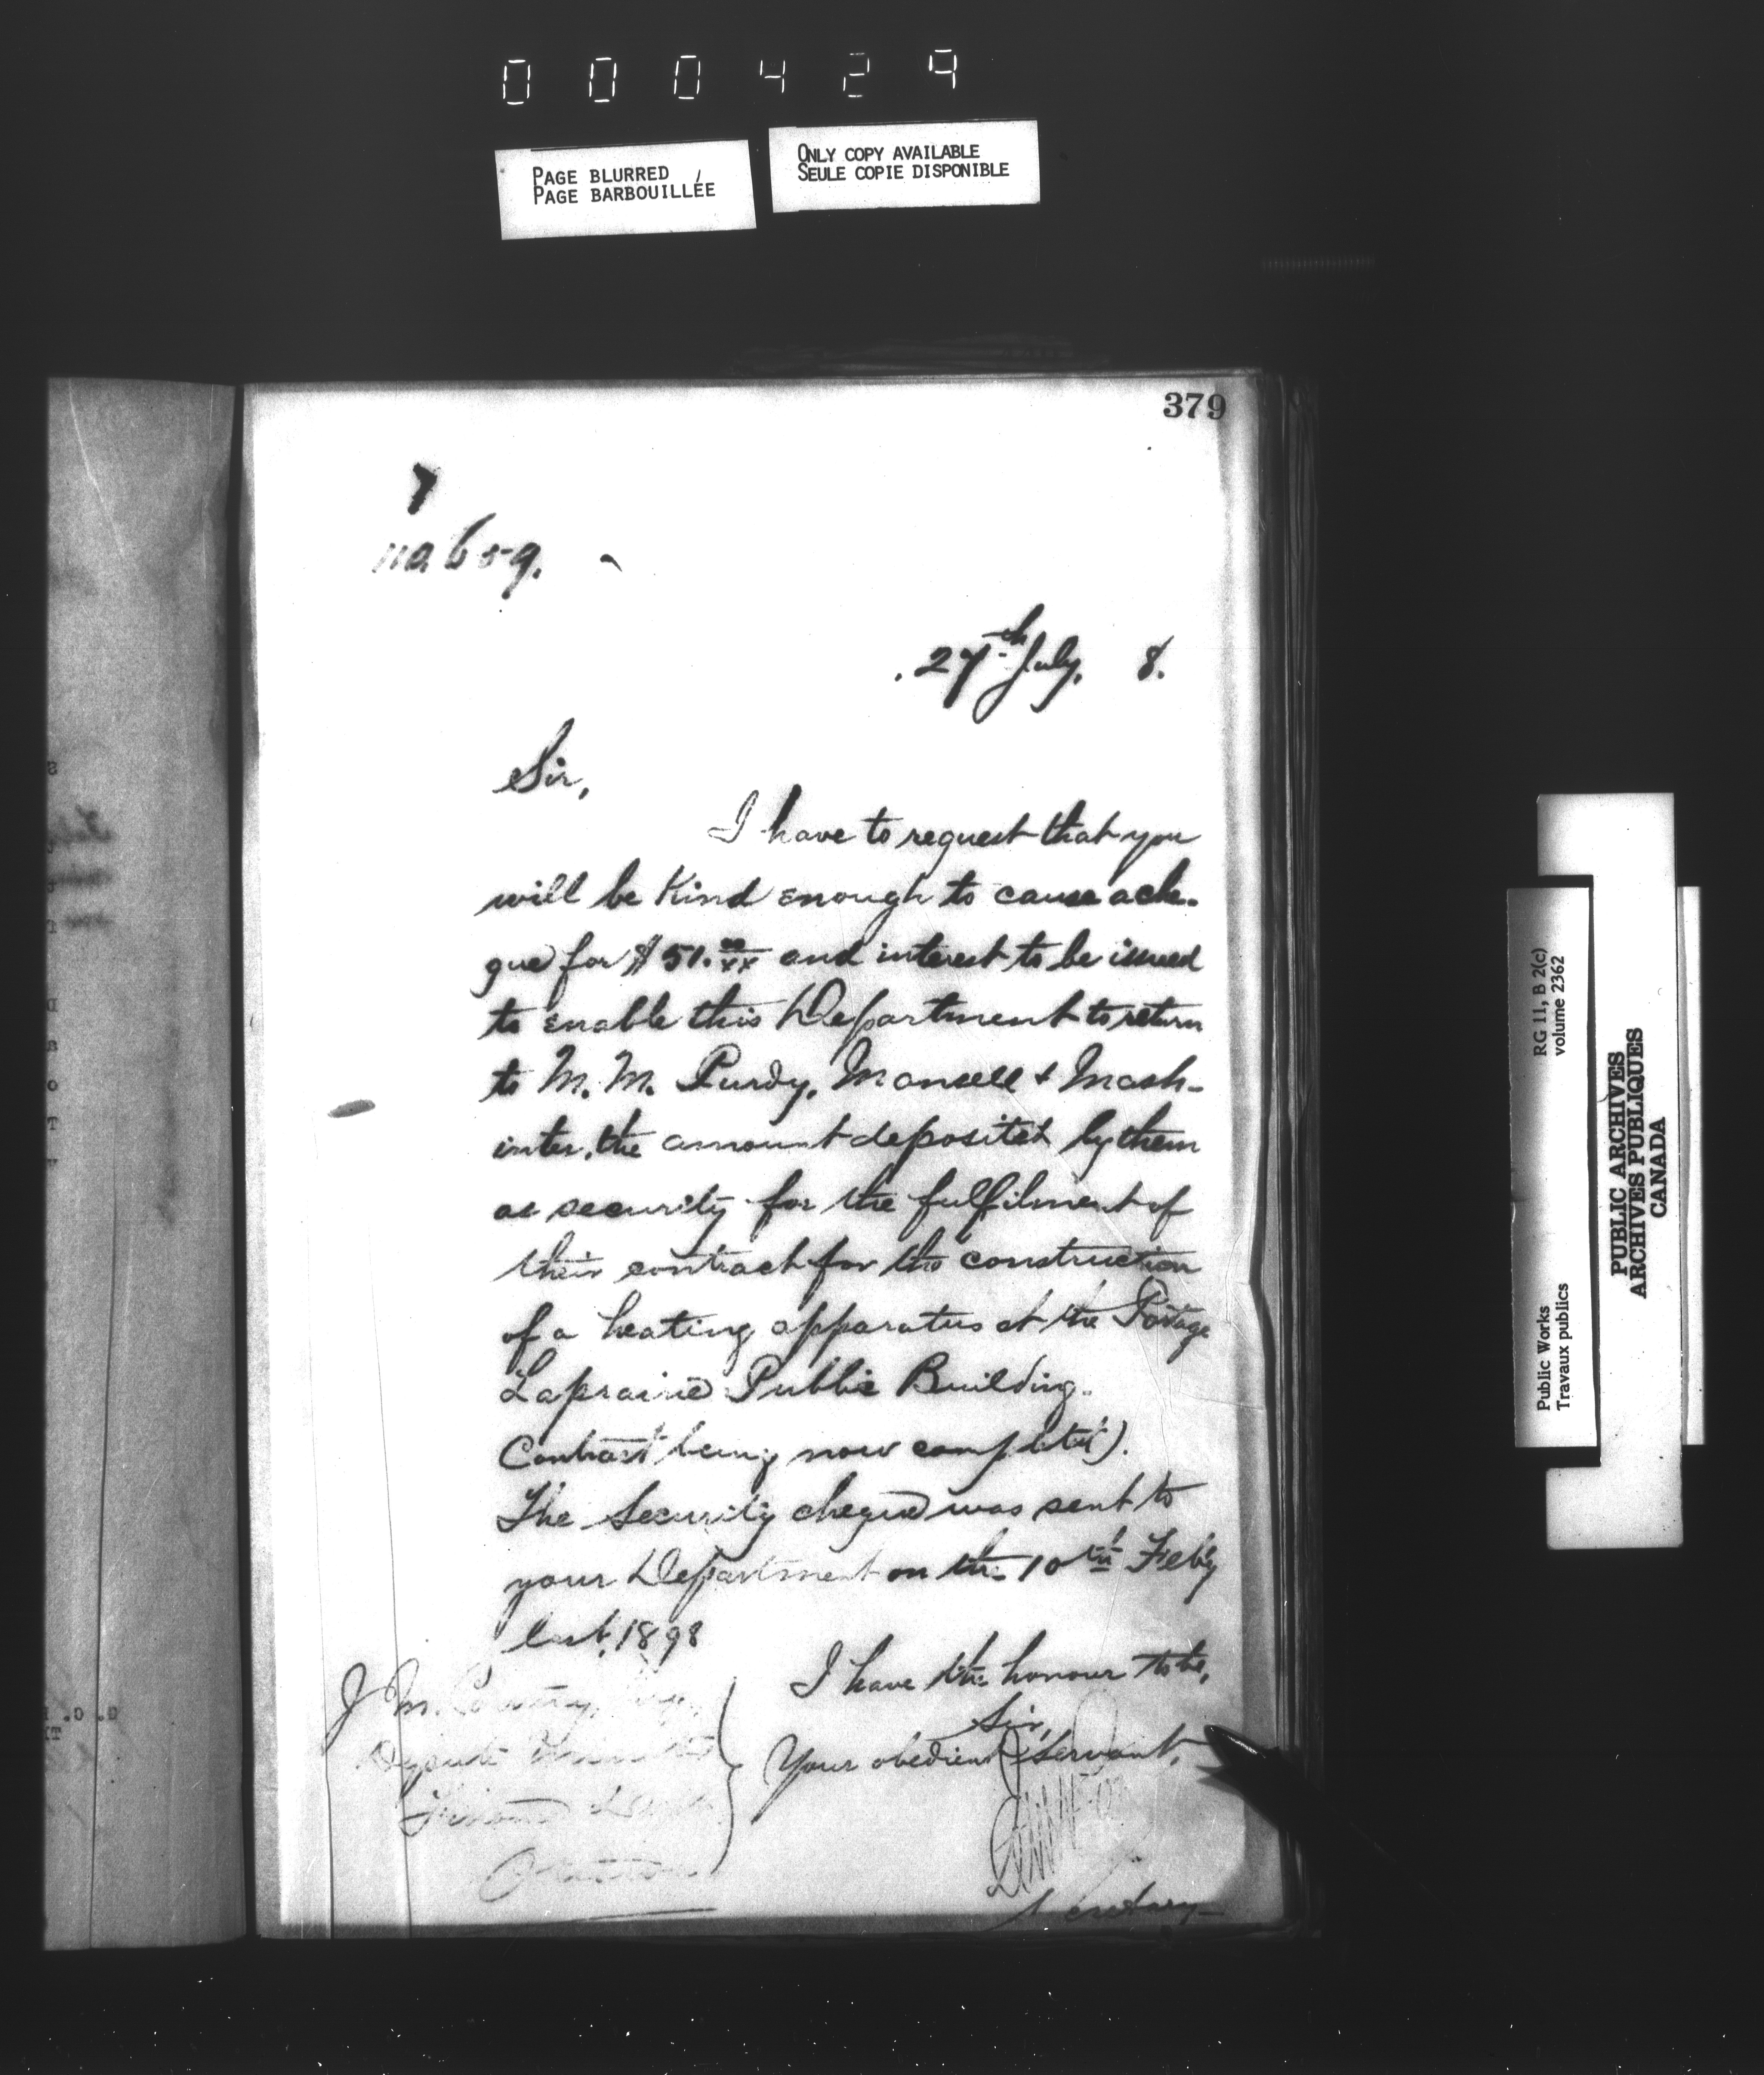 000429
PAGE BLURRED
PAGE BARBOUILLÉE
ONLY COPY AVAILABLE
SEULE COPIE DISPONIBLE
379
7
27th July, 8.
Sir,
I have to request that you
will be Kind enough to cause a che-
que for $51.00/xx and interest to be issued
to enable this Department to return
to M. M. Purdy, Mansell & Mash-
inter, the amount deposited by them
as security for the fulfilment of
their contract for the construction
of a heating apparatus at the Portage
Laprairie Public Building.
Contract being now completed).
The Security cheque was sent to
your Department on the 10th Feb'y
last, 1898
I have the honour to be,
Sir,
Your obedient Servant,
Secretary
J. M. Courtney, Esqr.
Deputy Minister
Finance Dept.
Ottawa
RG 11, B 2(c)
volume 2362
Public Works
Travaux publics
PUBLIC ARCHIVES
ARCHIVES PUBLIQUES
CANADA